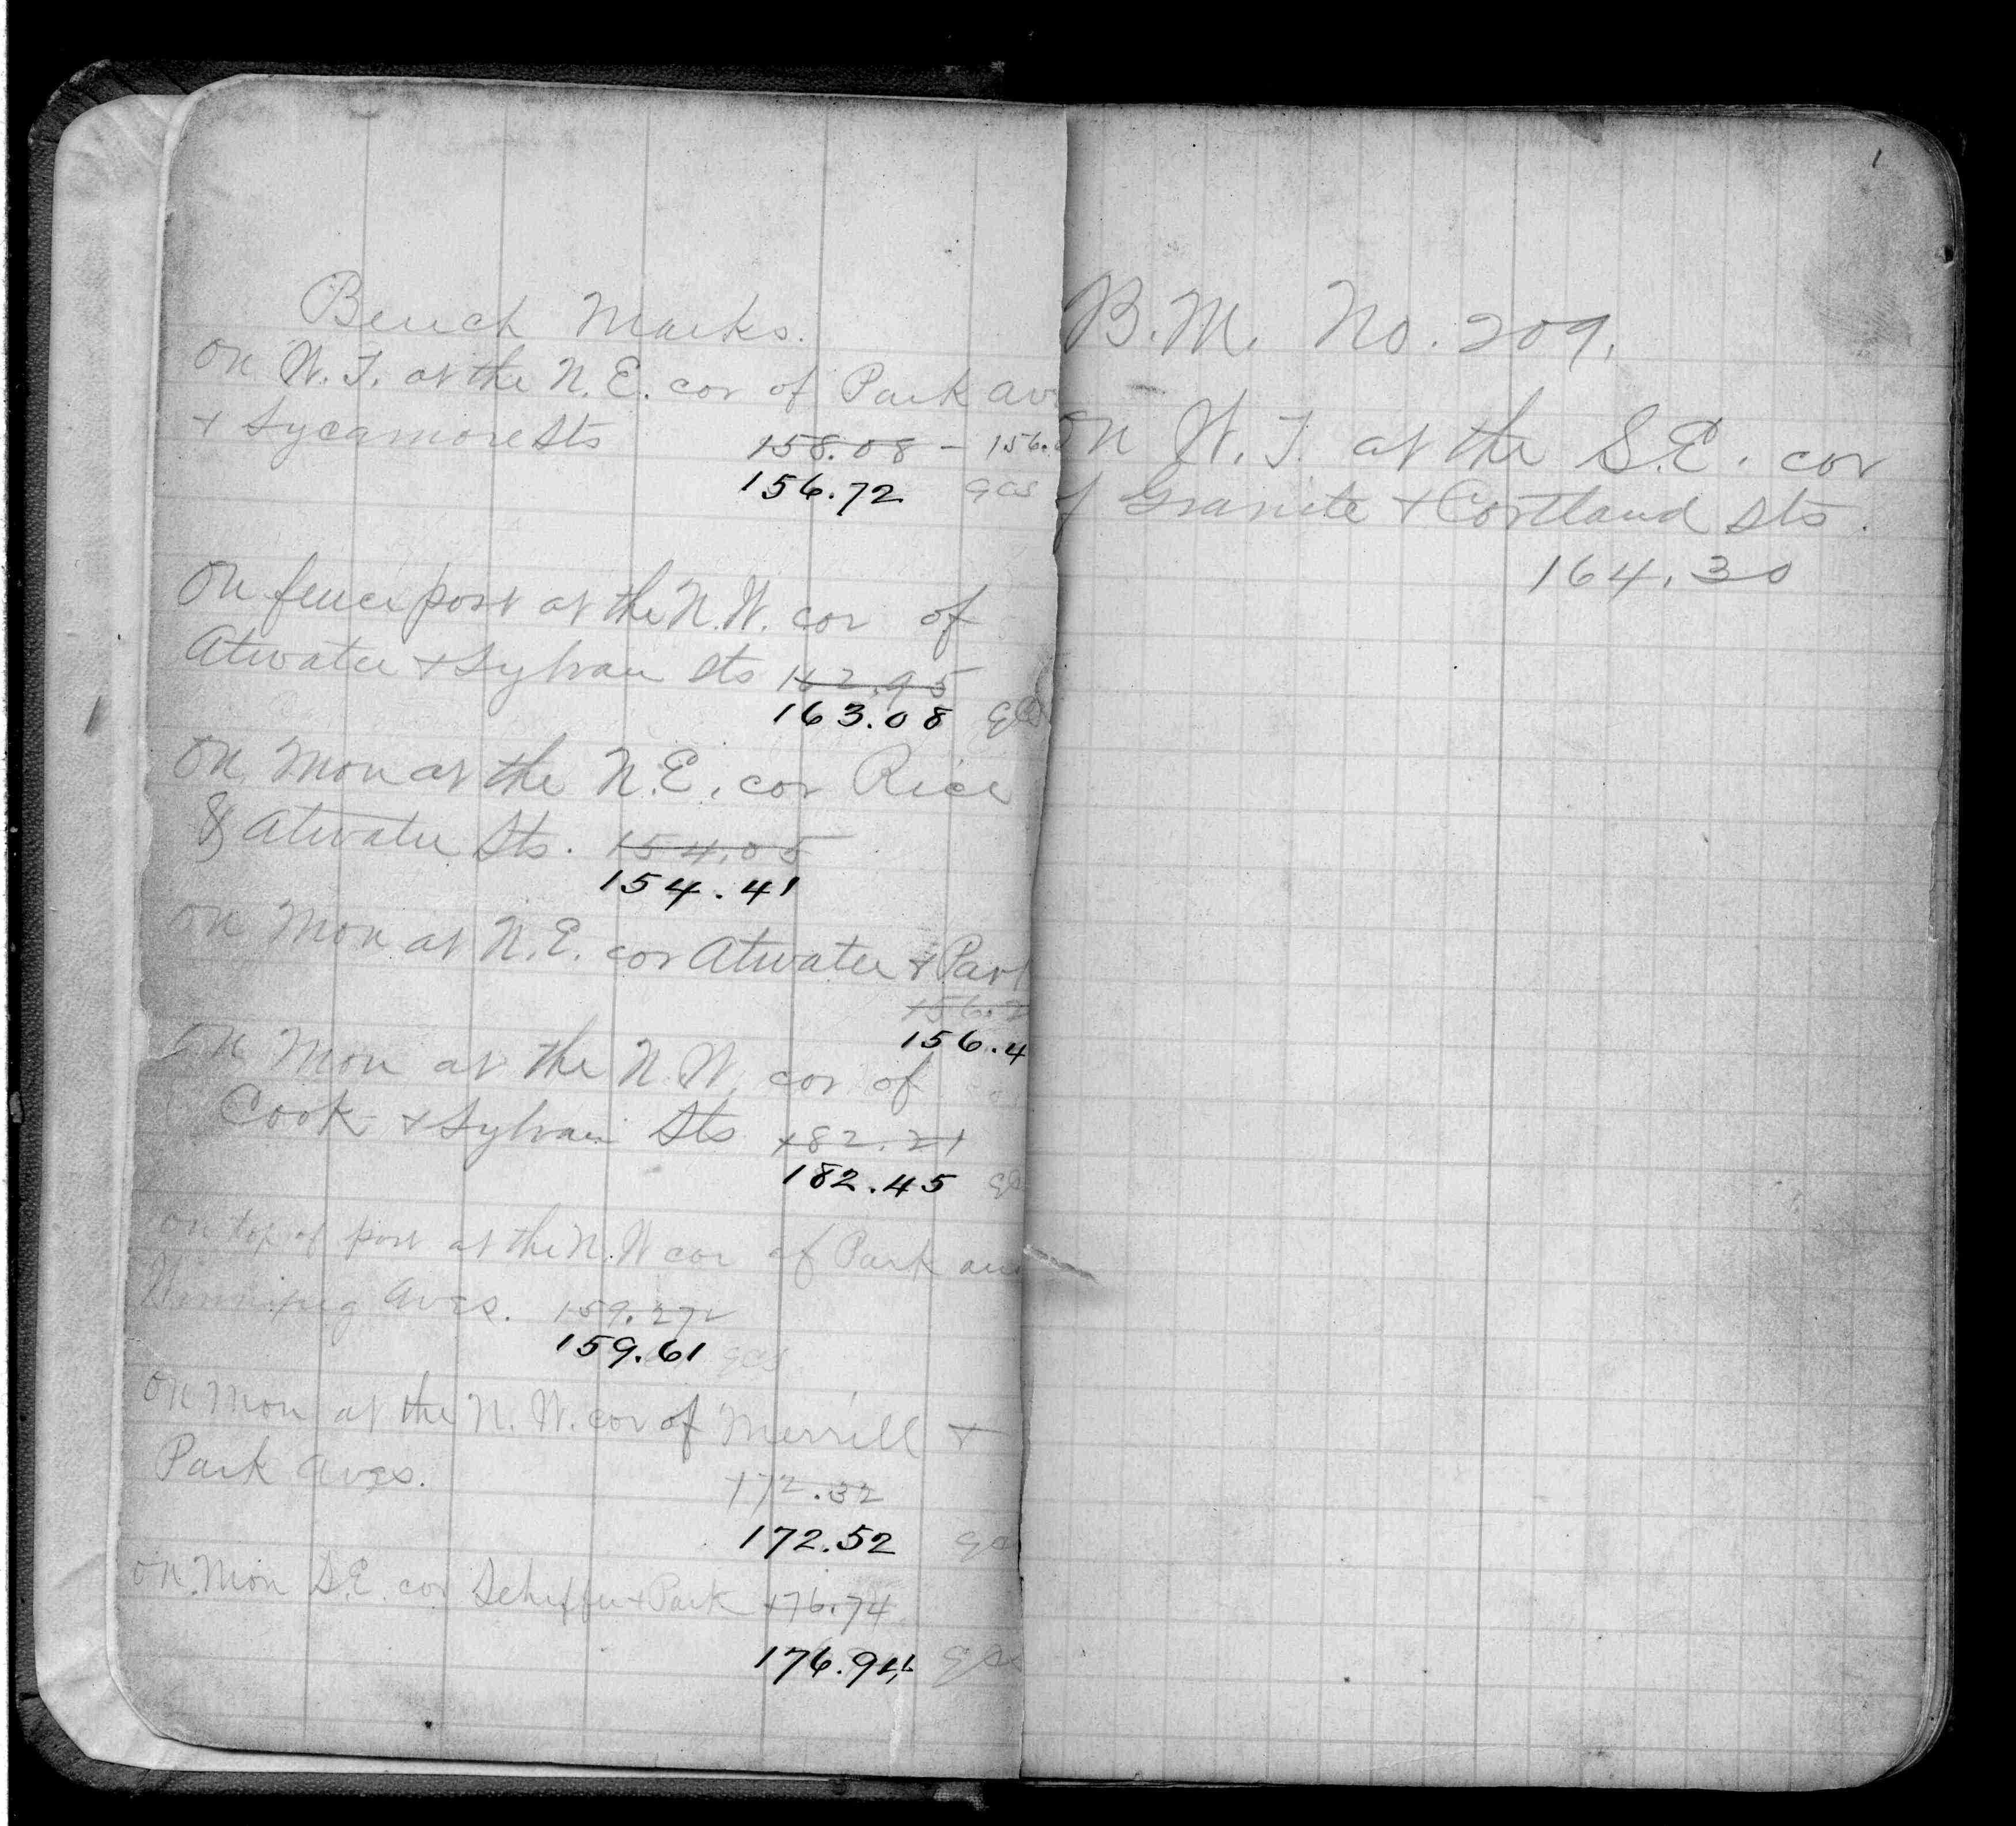 Bench Marks.
On W. T. at the N. E. cor of Park av
+ Sycamore Sts 158.08 - 156.
156.72 gas
On fence post at the N. W. cor of
Atwater + Sylvan Sts 162.95
163.08
On Mon at the N. E. cor Rice
& Atwater Sts. 154.05
154.41
On Mon at N. E. cor Atwater + Park
156.2
156.4
On Mon at the N. W. cor of
Cook + Sylvan Sts 182.21
182.45
On top of post at the N. W cor of Park and
Winnipeg Aves. 159.272
159.61 gas
On Mon at the N. W. cor of Merrill +
Park Aves. 172.32
172.52
On Mon S. E. cor Scheffer + Park 176.74
176.94
1
B. M. No. 209.
On W. T. at the S. E. cor
of Granite + Cortland Sts.
164.30